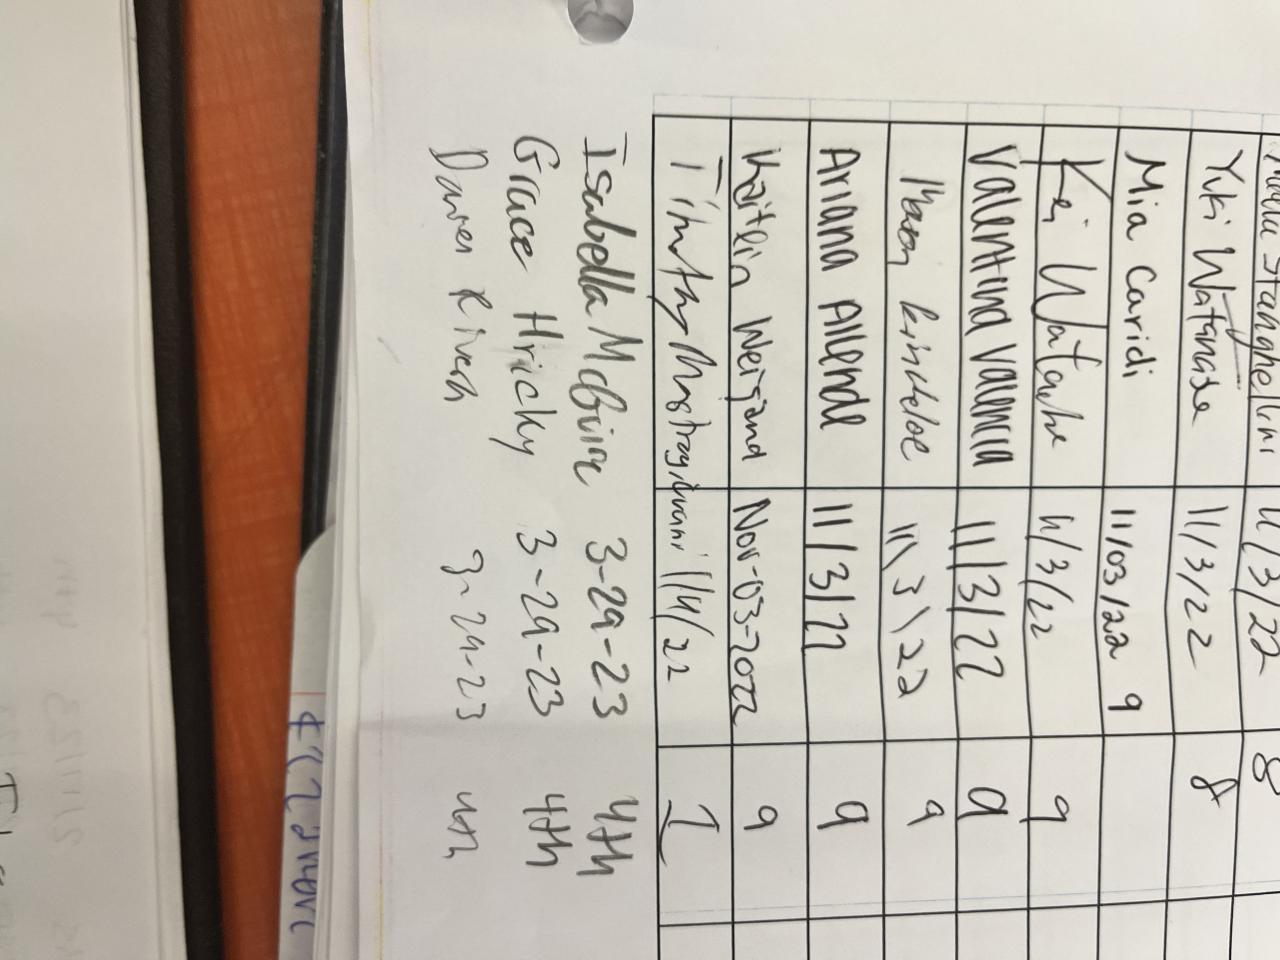 Stanghellini 11/3/22 8
Yuki Watanabe 11/3/22 8
Mia Caridi 11/03/22 9
Kei Watanabe 11/3/22 9
Valentina Valencia 11/3/22 9
Mason Kinkeloe 11\3\22 9
Ariana Allende 11/3/22 9
Kaitlin Weigand Nov-03-2022 9
Timothy 11/4/22
Isabella McGuire 3-29-23 4th
Grace Hricky 3-29-23 4th
Rivera 3-29-23 4th